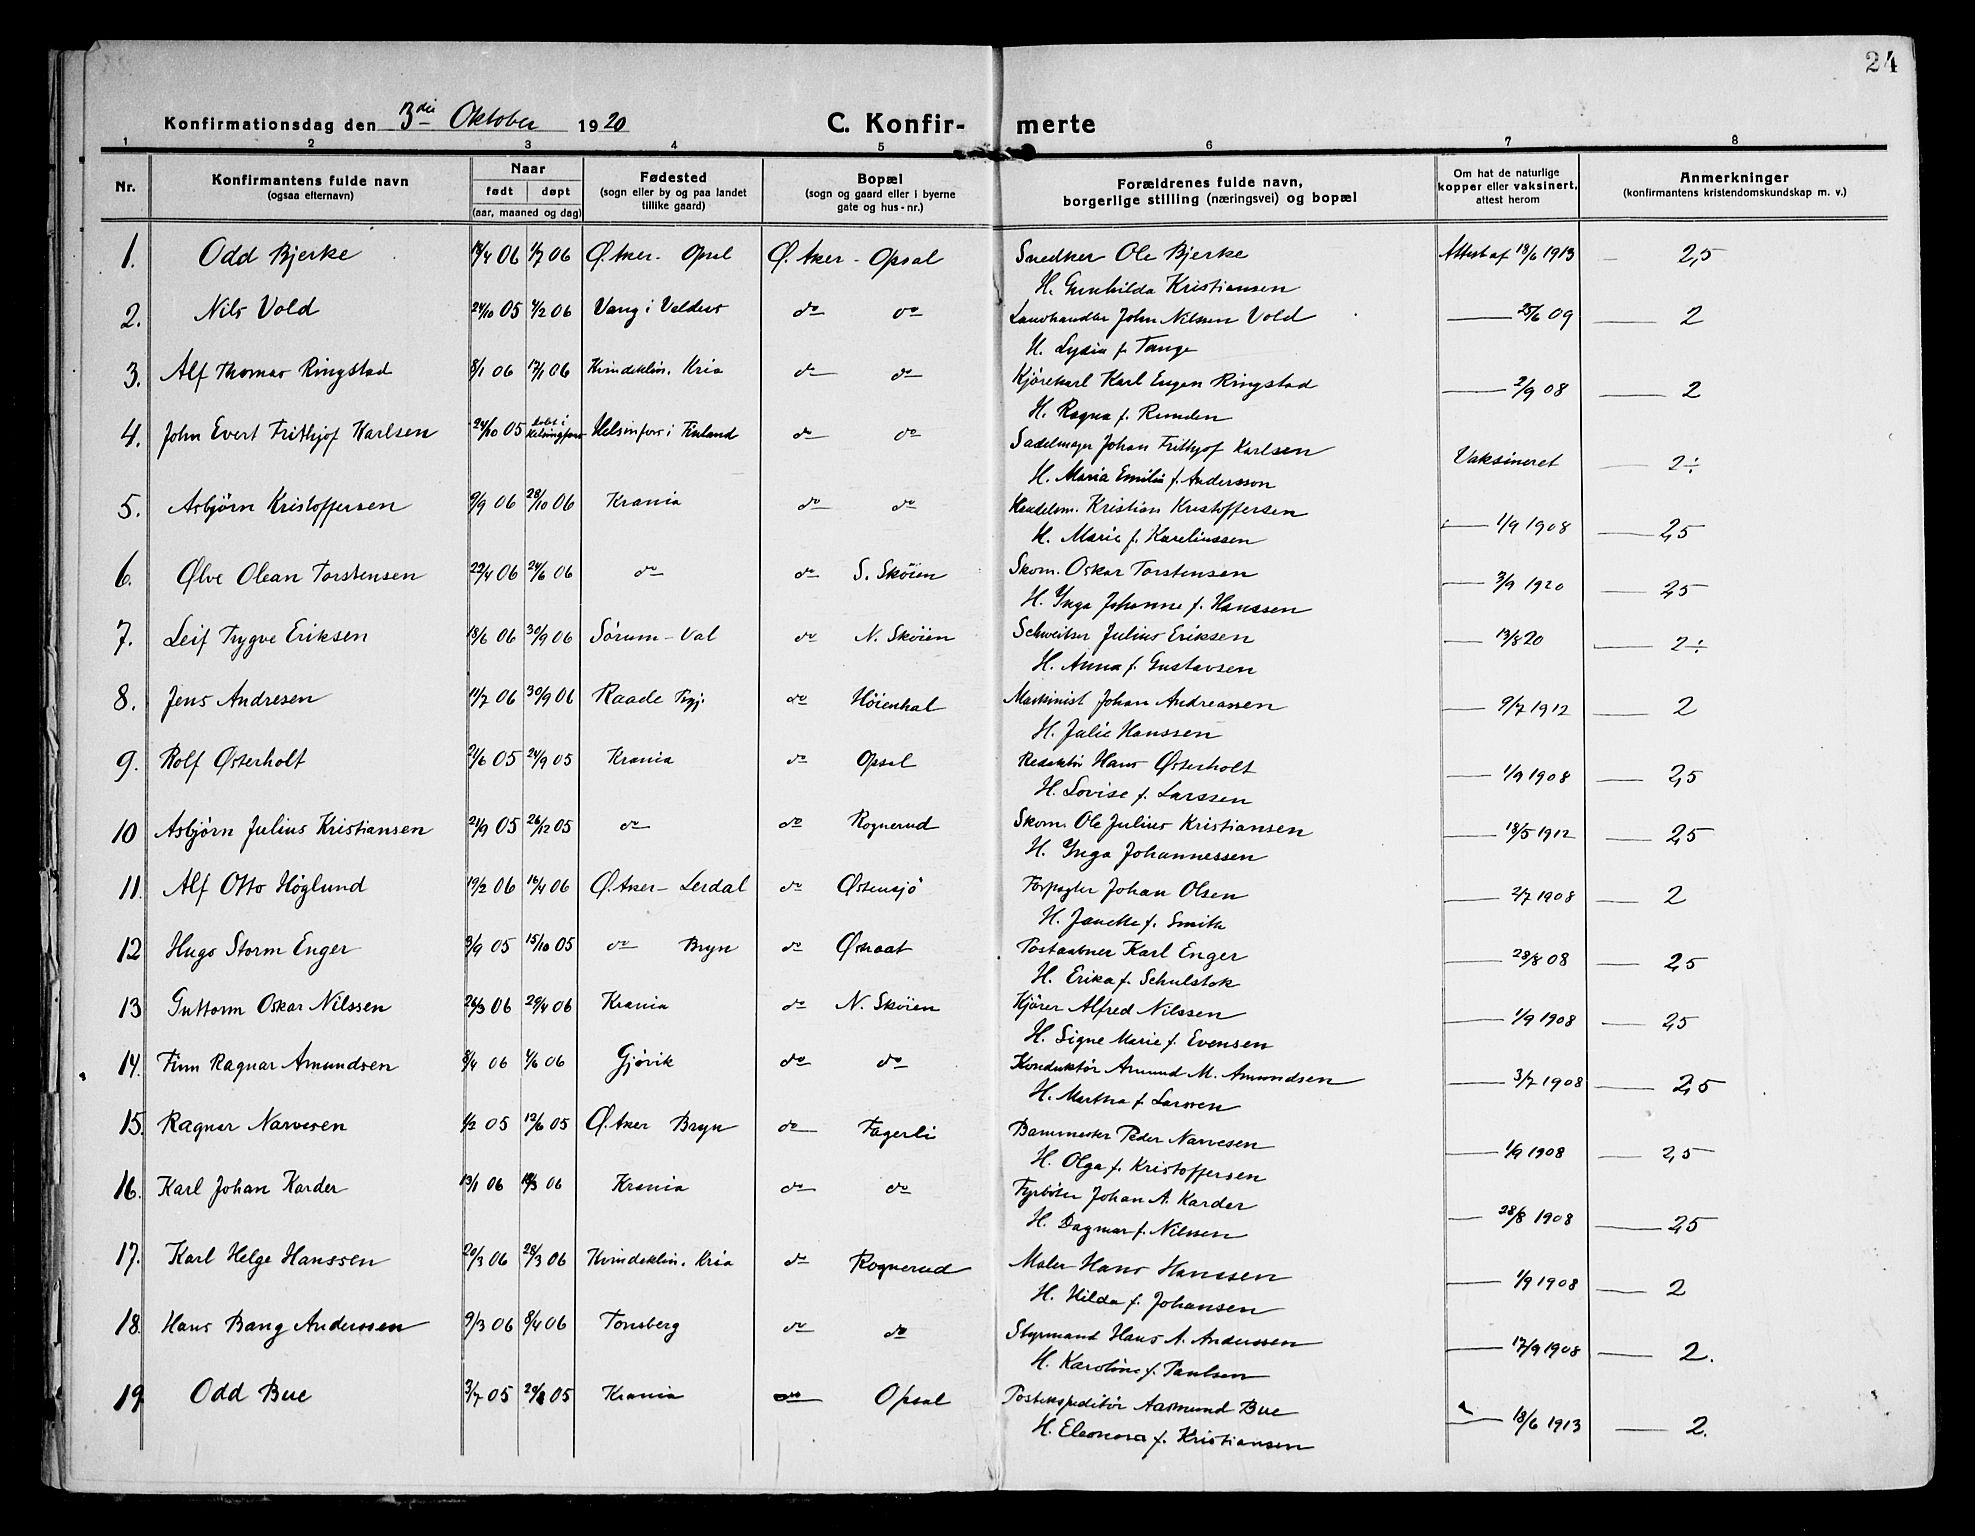 24
Konfirmationsdag den 3die Oktober 1920
C. Konfir- merte
1 2 3 4 5 6 7 8
Nr.
Konfirmantens fulde navn
(ogsaa efternavn)
Naar
født døpt
(aar, maaned og dag)
Fødested
(sogn eller by og paa landet
tillike gaard)
Bopæl
(sogn og gaard eller i byerne
gate og hus-nr.)
Forældrenes fulde navn,
borgerlige stilling (næringsvei) og bopæl
Om hat de naturlige
kopper eller vaksinert,
attest herom
Anmerkninger
(konfirmantens kristendomskundskap m. v.)
1. Odd Bjerke 06 1/7 06 Ø. Aker - Opsal Ø. Aker - Opsal Snedker Ole Bjerke Attest af 18/6 1913 — 2,5
H. Gunhilda Kristiansen
2. Nils Vold 24/10 05 4/2 06 Vang i Valders do do Landhandler John Nilssen Vold — 25/6 09 — 2
H. Lydia f. Tange
3. Alf Thomas Ringstad 8/1 06 17/1 06 Kvindeklin. Kria do do Kjørekarl Karl Eugen Ringstad — 2/9 08 — 2
H. Ragna f. Runden
4. John Evert Frithjof Karlsen 24/10 05 døbt i Helsingfors Helsinfors i Finland do do Sadelmager Johan Frithjof Karlsen Vaksineret — 2÷
H. Maria Emilia f. Andersson
5. Asbjørn Kristoffersen 9/9 06 28/10 06 Krania do do Handelsm. Kristian Kristoffersen — 1/9 1908 — 2,5
H. Marie f. Kareliussen
6. Ølve Olean Torstensen 22/4 06 24/6 06 do do S. Skøien Skom. Oskar Torstensen — 3/9 1920 — 2,5
H. Ynga Johanne f. Hanssen
7. Leif Trygve Eriksen 18/6 06 30/9 06 Sørum - Val do N. Skøien Schweitser Julius Eriksen — 13/8 20 — 2÷
H. Anna f. Gustavsen
8. Jens Andresen 11/7 06 30/9 06 Raade Trgj. do Høienhal Maskinist Johan Andreassen — 9/7 1912 — 2
H. Julie Hanssen
9. Rolf Østerholt 21/6 05 24/9 05 Krania do Opsal Redaktør Hans Østerholt — 1/9 1908 — 2,5
H. Lovise f. Larssen
10 Asbjørn Julius Kristiansen 21/9 05 26/12 05 do do Rognerud Skom. Ole Julius Kristiansen — 18/5 1912 — 2,5
H. Ynga Johannessen
11. Alf Otto Høglund 19/2 06 16/4 06 Ø. Aker - Lerdal do Østensjø Forpagter Johan Olsen — 2/7 1908 — 2
H. Janette f. Smith
12 Hugo Storm Enger 3/9 05 15/10 05 do Bryn do Østraat Postaabner Karl Enger — 28/8 08 — 2,5
H. Erika f. Schulstok
13 Guttorm Oskar Nilssen 26/3 06 29/4 06 Krania do N. Skøien Kjører Alfred Nilssen — 1/9 1908 — 2,5
H. Signe Marie f. Evensen
14. Finn Ragnar Amundsen 8/4 06 4/6 06 Gjøvik do do Konduktør Amund M. Amundsen — 3/7 1908 — 2,5
H. Martha f. Larssen
15. Ragnar Narvesen 1/2 05 12/6 05 Ø. Aker Bryn do Fagerli Banmester Peder Narvesen — 1/9 1908 — 2,5
H. Olga f. Kristoffersen
16. Karl Johan Karder 13/1 06 18/3 06 Krania do do Fyrbøter Johan A. Karder — 28/8 1908 — 2,5
H. Dagmar f. Nilssen
17. Karl Helge Hanssen 20/3 06 28/3 06 Kvindeklin. Kria do Rognerud Maler Hans Hanssen — 1/9 1908 — 2
H. Hilda f. Johansen
18. Hans Bang Anderssen 9/3 06 8/4 06 Tønsberg do do Styrmand Hans A. Anderssen — 17/9 1908 — 2.
H. Karoline f. Paulsen
19. Odd Bue 3/7 05 05 Krania do Opsal Postekspeditør Aasmund Bue — 18/6 1913 — 2.
H. Eleonora f. Kristiansen